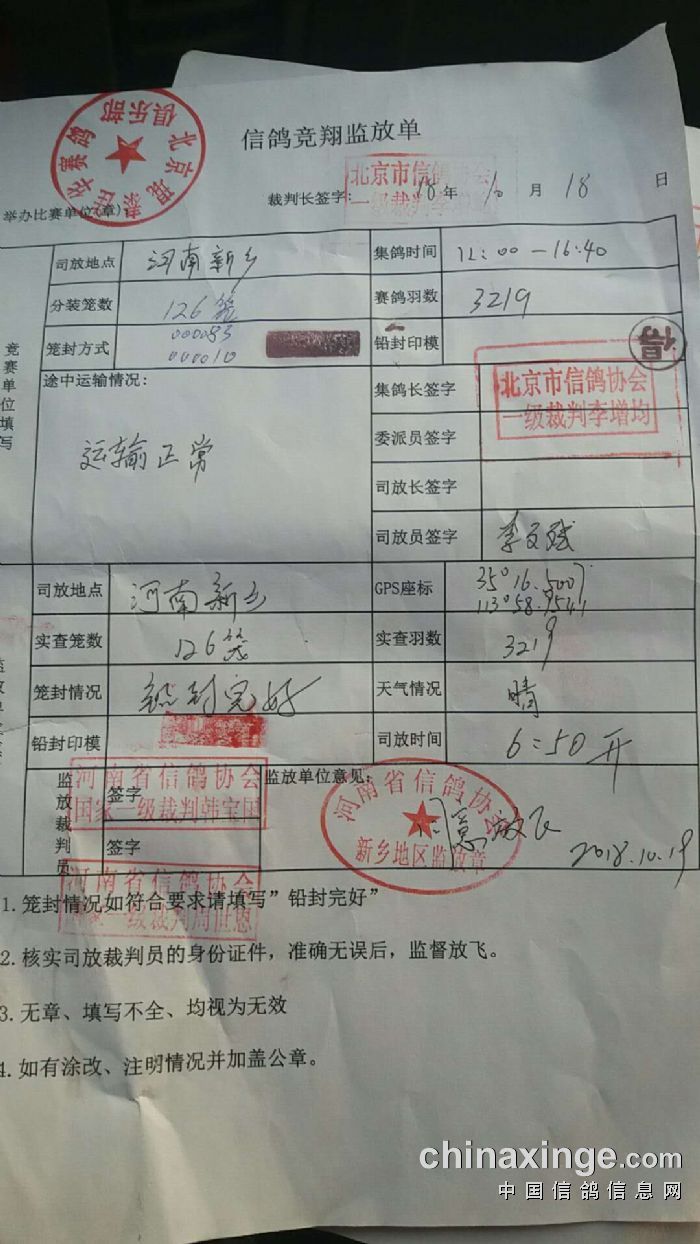 信鸽竞翔监放单
俱乐部
北京市信鸽协会
举办比赛单位(章)：
裁判长签字： 18 年 10 月 18 日
司放地点 河南新乡 集鸽时间 12:00—16:40
分装笼数 126笼 赛鸽羽数 3219
笼封方式 000083 铅封印模
000010
竞赛单位填写
途中运输情况: 集鸽长签字
北京市信鸽协会
一级裁判李增均
委派员签字
运输正常
司放长签字
司放员签字
司放地点 河南新乡 GPS座标 35°16.5007
113°58.9541
实查笼数 126笼 实查羽数 3219
笼封情况 铅封完好 天气情况 晴
铅封印模 司放时间 6:50开
监放裁判员 签字 监放单位意见:
河南省信鸽协会
国家一级裁判韩宝国
河南省信鸽协会
新乡地区监放章
同意放飞
2018.10.19
签字
河南省信鸽协会
国家一级裁判周世恩
1.笼封情况如符合要求请填写"铅封完好"
2.核实司放裁判员的身份证件，准确无误后，监督放飞。
3.无章、填写不全、均视为无效
4.如有涂改、注明情况并加盖公章。
chinaxinge.com
中国信鸽信息网